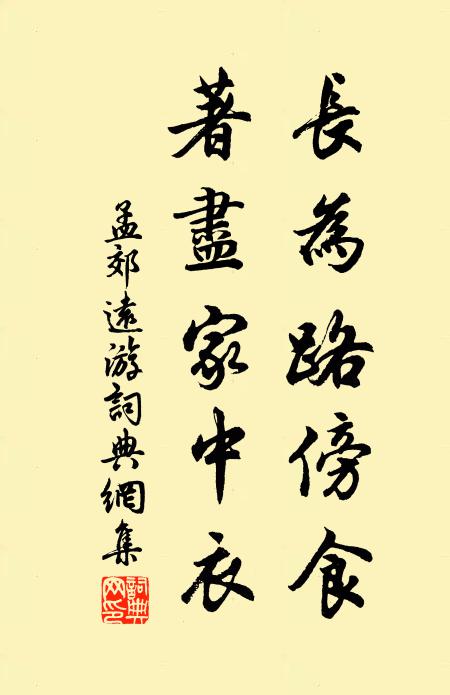 長為路傍食
著盡家中衣
孟郊遠游詞典網集
詞典网印